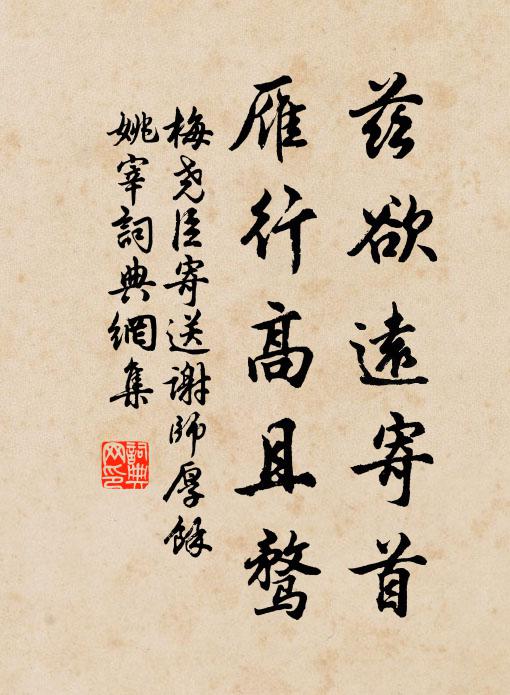 茲欲遠寄首
雁行高且騖
梅堯臣寄送謝師厚餘
姚宰詞典網集
詞典
网印